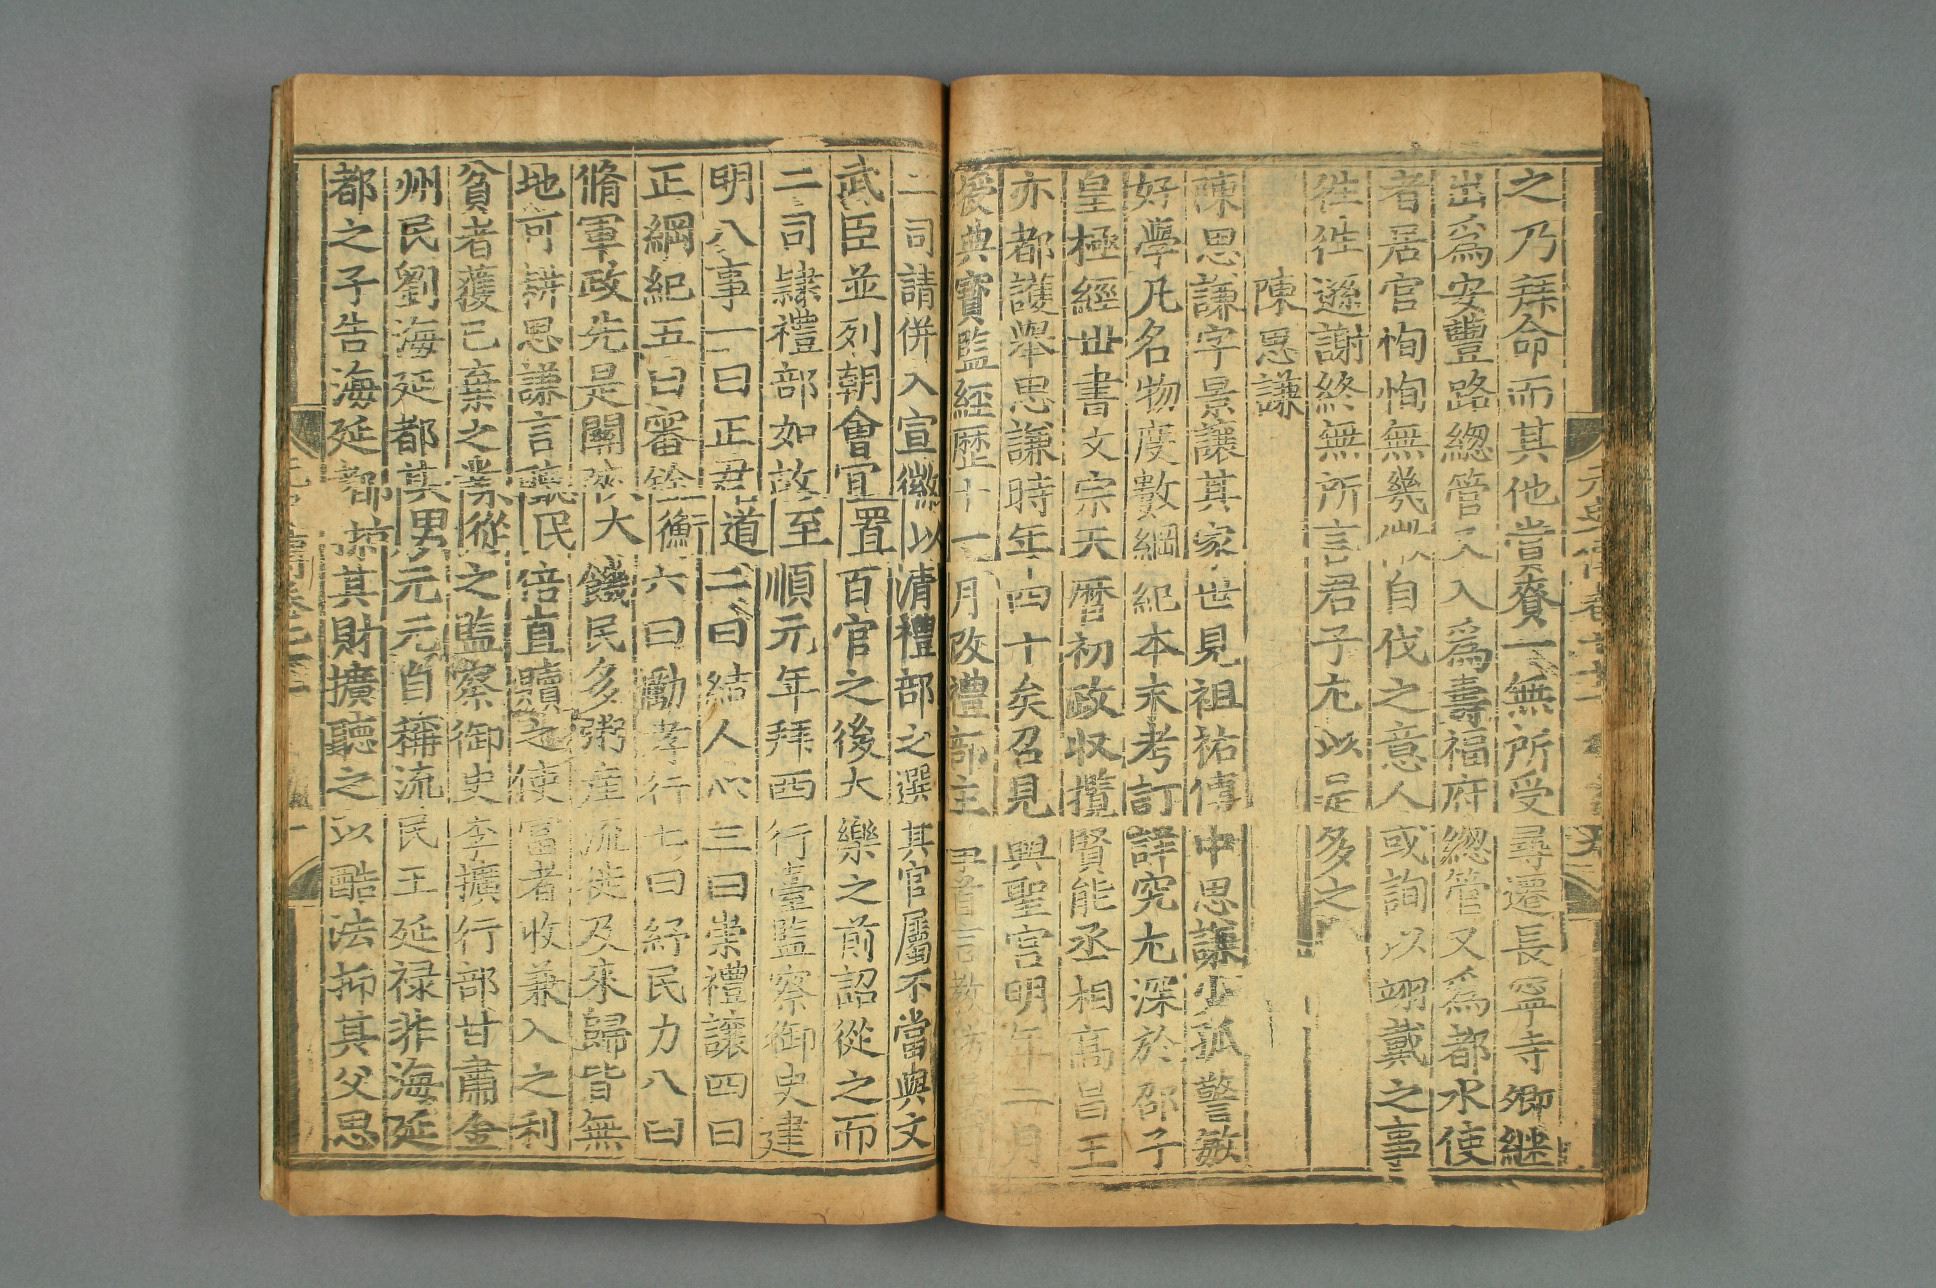 之乃拜命而其他賞賚一無所受尋遷長寧寺卿継
出爲安豐路緫管又入爲壽福府緫管又爲都水使
者居官恂恂無幾微自伐之意人或詢以翊戴之事
徃徃遜謝終無所言君子尤以是多之
陳思謙
陳思謙字景讓其家世見祖祐傳中思謙少孤警敏
好學凡名物度數綱紀本末考訂詳究尤深於邵子
皇極經世書文宗天曆初政収攬賢能丞相高昌王
亦都護舉思謙時年四十矣召見興聖宮明年二月
授典寶監經歴十一月改禮部主事首言教坊
二司請併入宣徽以清禮部之選其官屬不當與文
武臣並列朝會宜置百官之後大樂之前詔從之而
二司隷禮部如故至順元年拜西行臺監察御史建
明八事一曰正君道二曰結人心三曰崇禮讓四曰
正綱紀五曰審銓衡六曰勵孝行七曰紓民力八曰
脩軍政先是關陝大饑民多粥産流徙及來歸皆無
地可耕思謙言聽民倍直贖之使富者收兼入之利
貧者獲已棄之業從之監察御史李擴行部甘肅金
州民劉海延都其男元元自稱流民王延禄非海延
都之子告海延都掠其財擴聽之以酷法抑其父思
元史列傳卷七十一